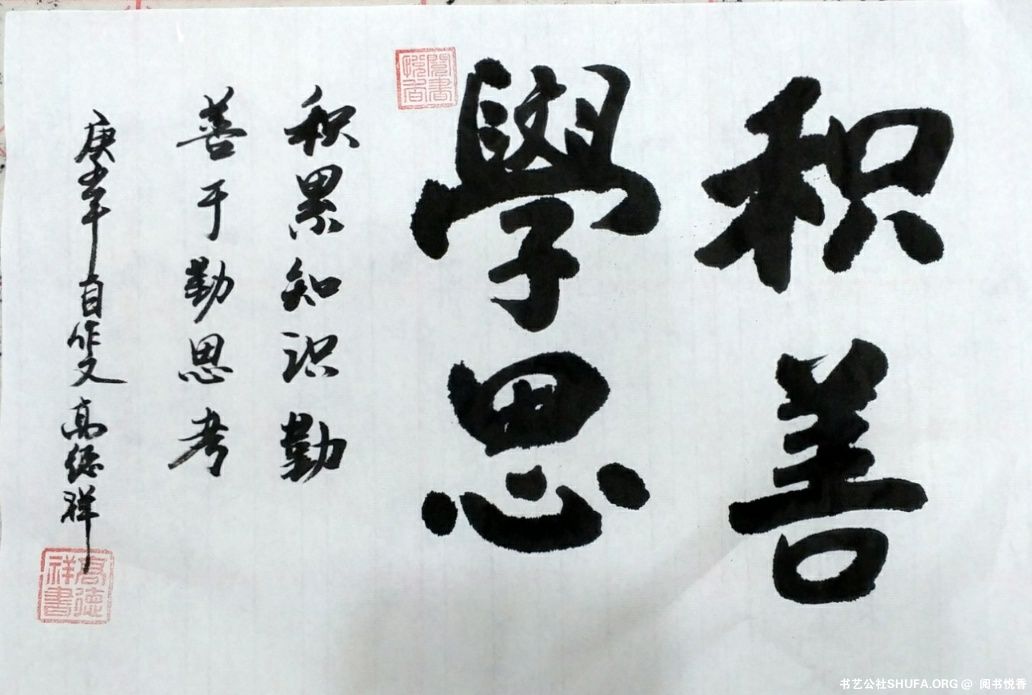 积善
學思
閱書悅香
积累知识勤
善于勤思考
庚子年自作文高德祥
高德祥書
书艺公社SHUFA.ORG @ 阅书悦香